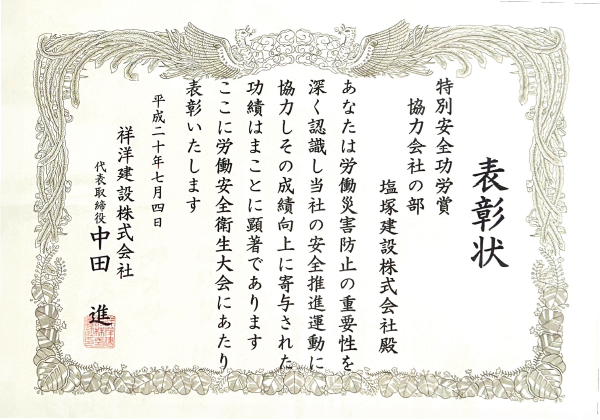 表彰状
特別安全功労賞
協力会社の部
塩塚建設株式会社殿
あなたは労働災害防止の重要性を
深く認識し当社の安全推進運動に
協力しその成績向上に寄与された
功績はまことに顕著であります
ここに労働安全衛生大会にあたり
表彰いたします
平成二十年七月四日
祥洋建設株式会社
代表取締役 中田 進